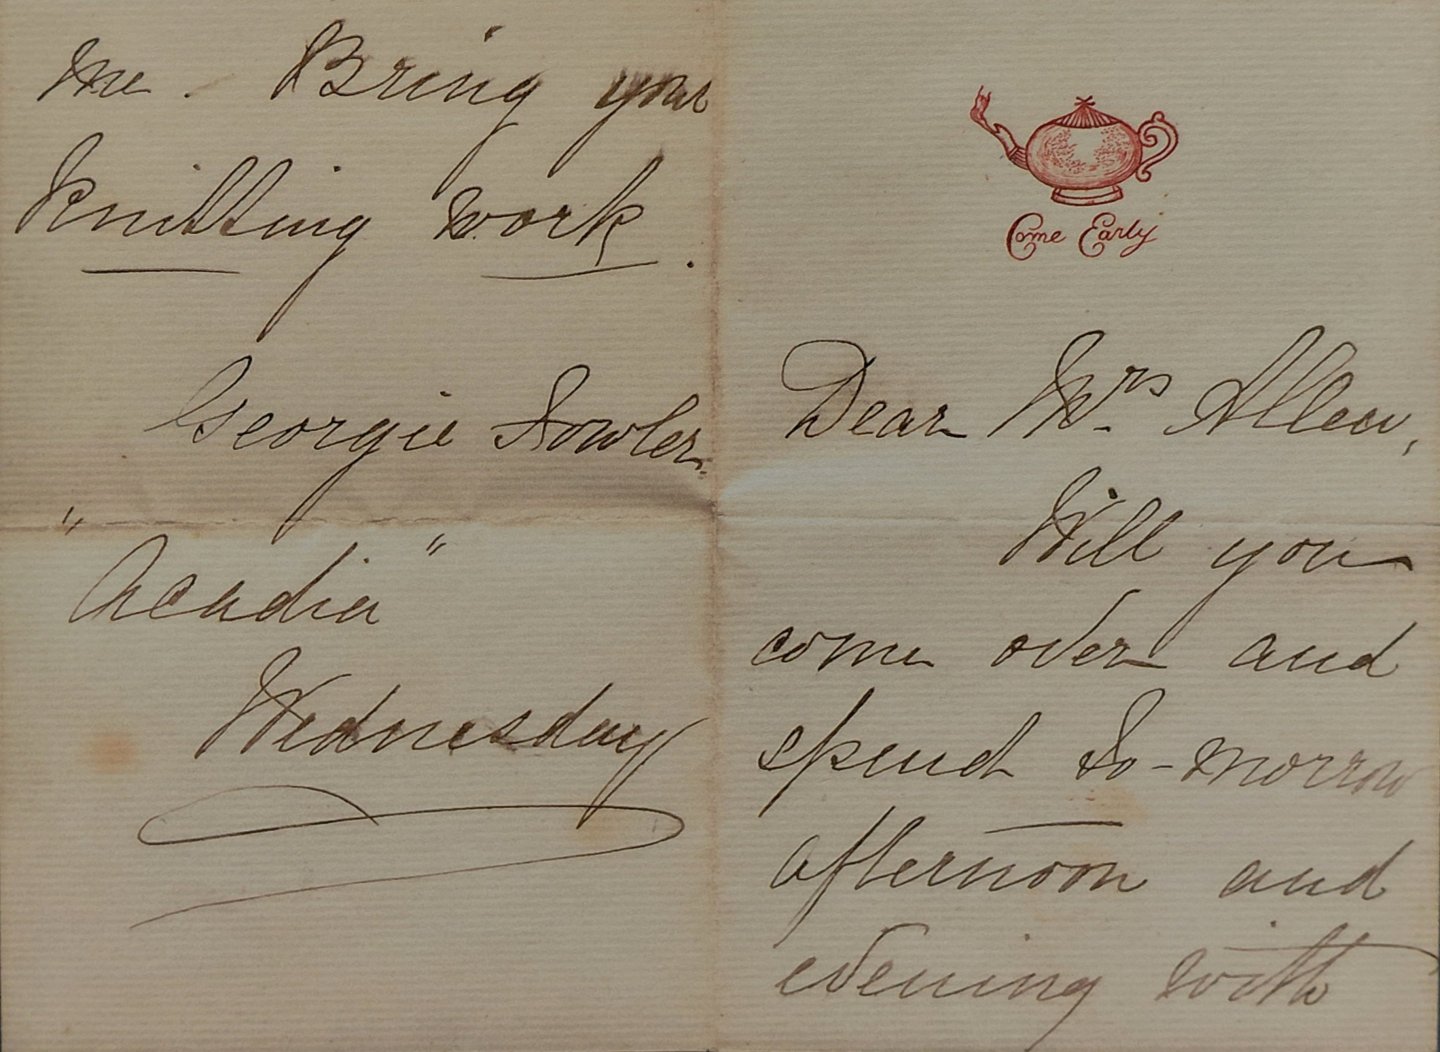 Come Early
Dear Mrs Allen,
Will you
come over and
spend to-morrow
afternoon and
evening with
me. Bring your
knitting work.
Georgie Fowler.
"Acadia"
Wednesday